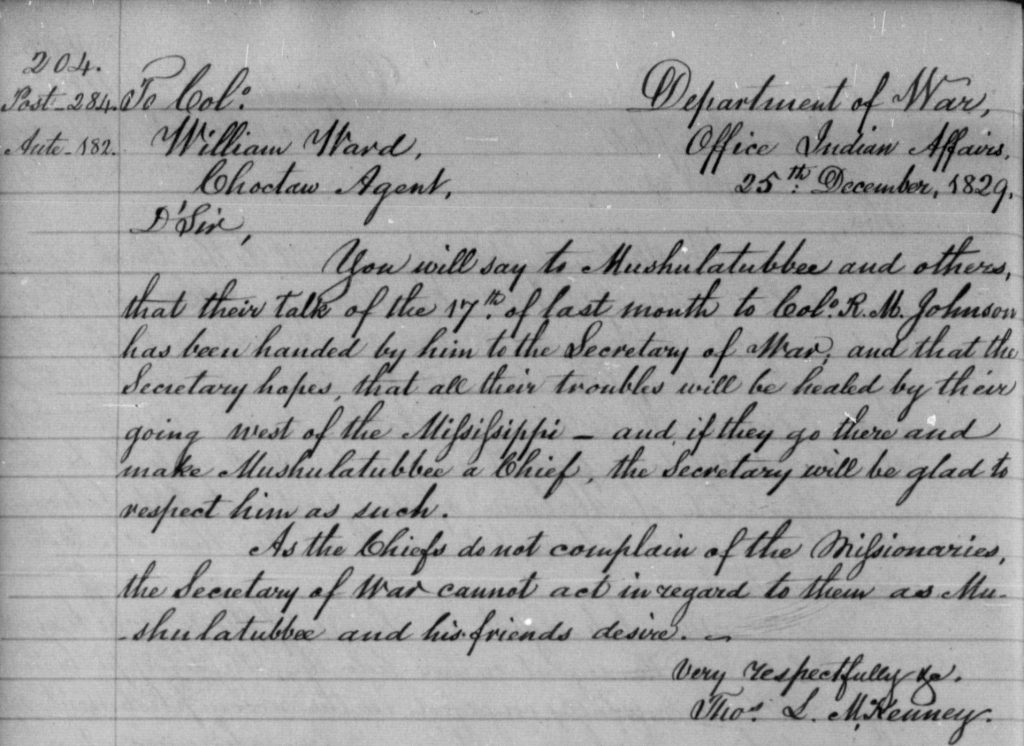 204.
Post-284. To Col.° Department of War,
Ante-182. William Ward, Office Indian Affairs,
Choctaw Agent, 25th. December, 1829.
D'Sir,
You will say to Mushulatubbee and others,
that their talk of the 17th. of last month to Col.° R. M. Johnson
has been handed by him to the Secretary of War, and that the
Secretary hopes, that all their troubles will be healed by their
going west of the Miſsiſsippi – and if they go there and
make Mushulatubbee a Chief, the Secretary will be glad to
respect him as such.
As the Chiefs do not complain of the Miſsionaries,
the Secretary of War cannot act in regard to them as Mu-
-shulatubbee and his friends desire. –
Very respectfully &c.
Thos. L. McKenney.